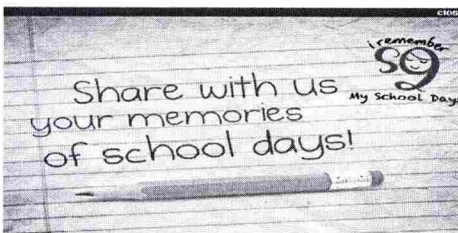 i remember
SG
My School Days
Share with us
your memories
of school days!